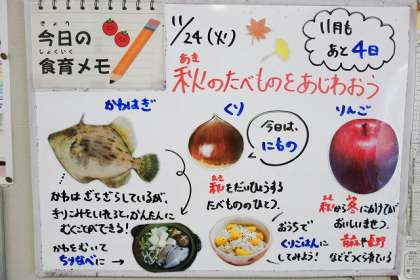 今日の
食育メモ
11/24(火)
11月も
あと4日
秋のたべものをあじわおう
かわはぎ
くり
りんご
今日は、
にもの
かわはざらざらしているが、
きりこみをいれると、かんたんに
むくことができる!
かわをむいて
ちりなべに
秋をだいひょうする
たべもののひとつ。
おうちで
くりごはんに
してみよう!
秋から冬にかけてが
おいしいきせつ。
青森や長野
などでつくられている